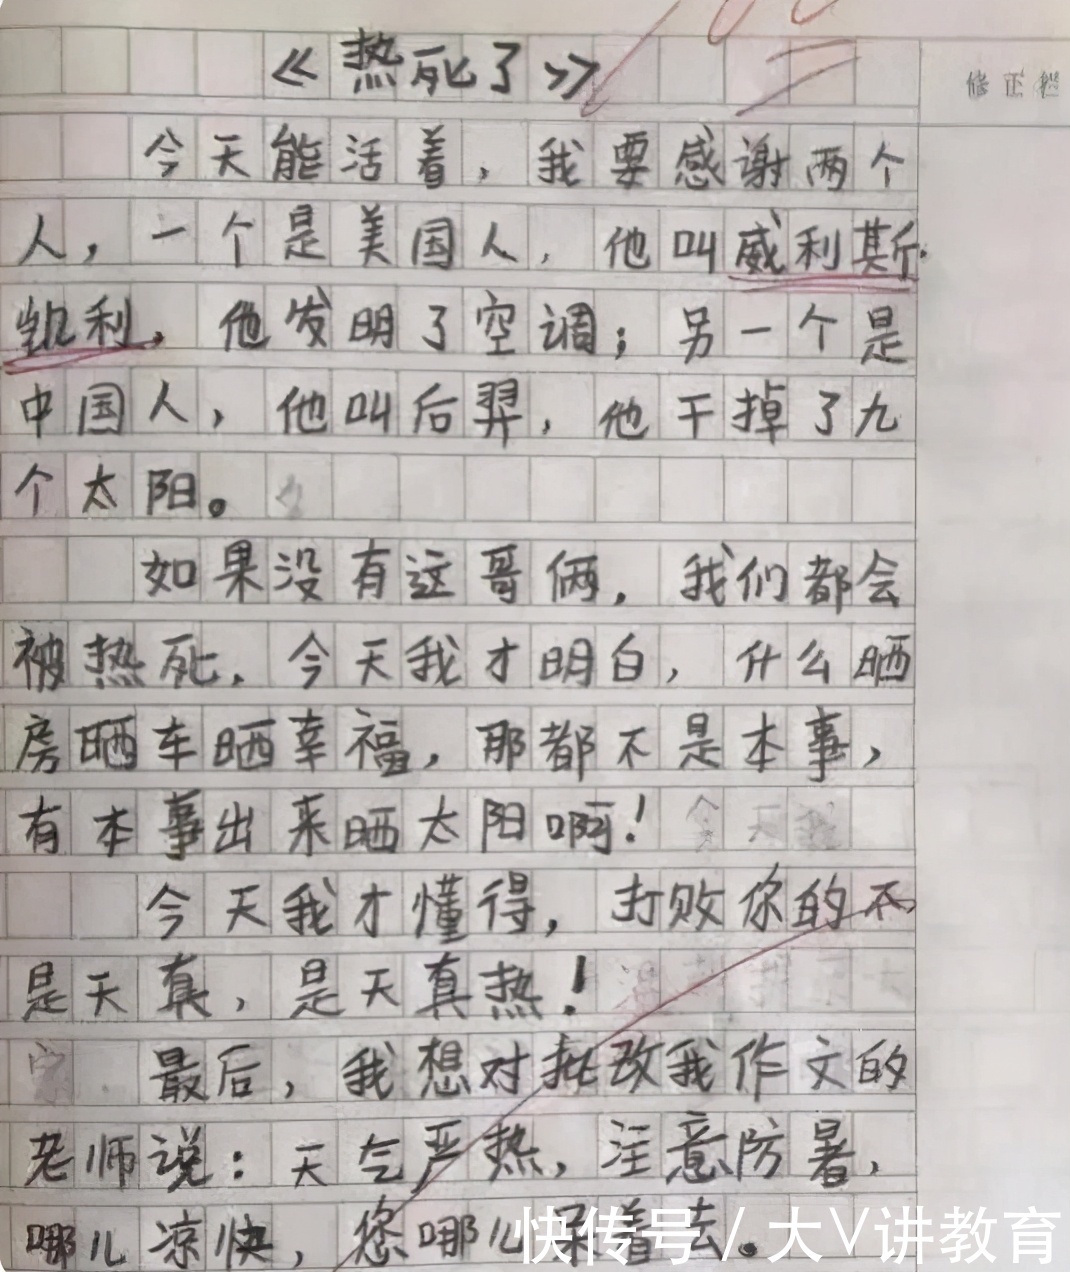 《热死了》
修正栏
今天能活着，我要感谢两个
人，一个是美国人，他叫威利斯·
凯利，他发明了空调；另一个是
中国人，他叫后羿，他干掉了九
个太阳。
如果没有这哥俩，我们都会
被热死，今天我才明白，什么晒
房晒车晒幸福，那都不是本事，
有本事出来晒太阳啊！
今天我才懂得，打败你的不
是天真，是天真热！
最后，我想对批改我作文的
老师说：天气严热，注意防暑，
哪儿凉快，您哪儿呆着去。
快传号/大V讲教育